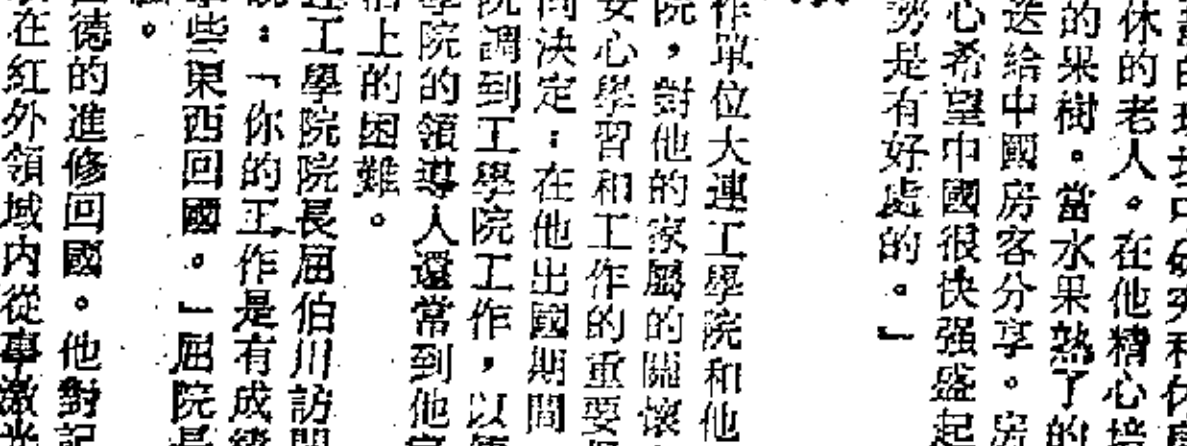 休的老人。在他精心培
的果樹。當水果熟了的
送給中國房客分享。房
心希望中國很快强盛起
勢是有好處的。」
作單位大連工學院和他
院，對他的家屬的關懷
安心學習和工作的重要
商決定：在他出國期間
院調到工學院工作，以
學院的領導人還常到他家
上的困難。
工學院院長屈伯川訪問
：「你的工作是有成績
些東西回國。」屈院長
德的進修回國。他對記
在紅外領域内從事激光